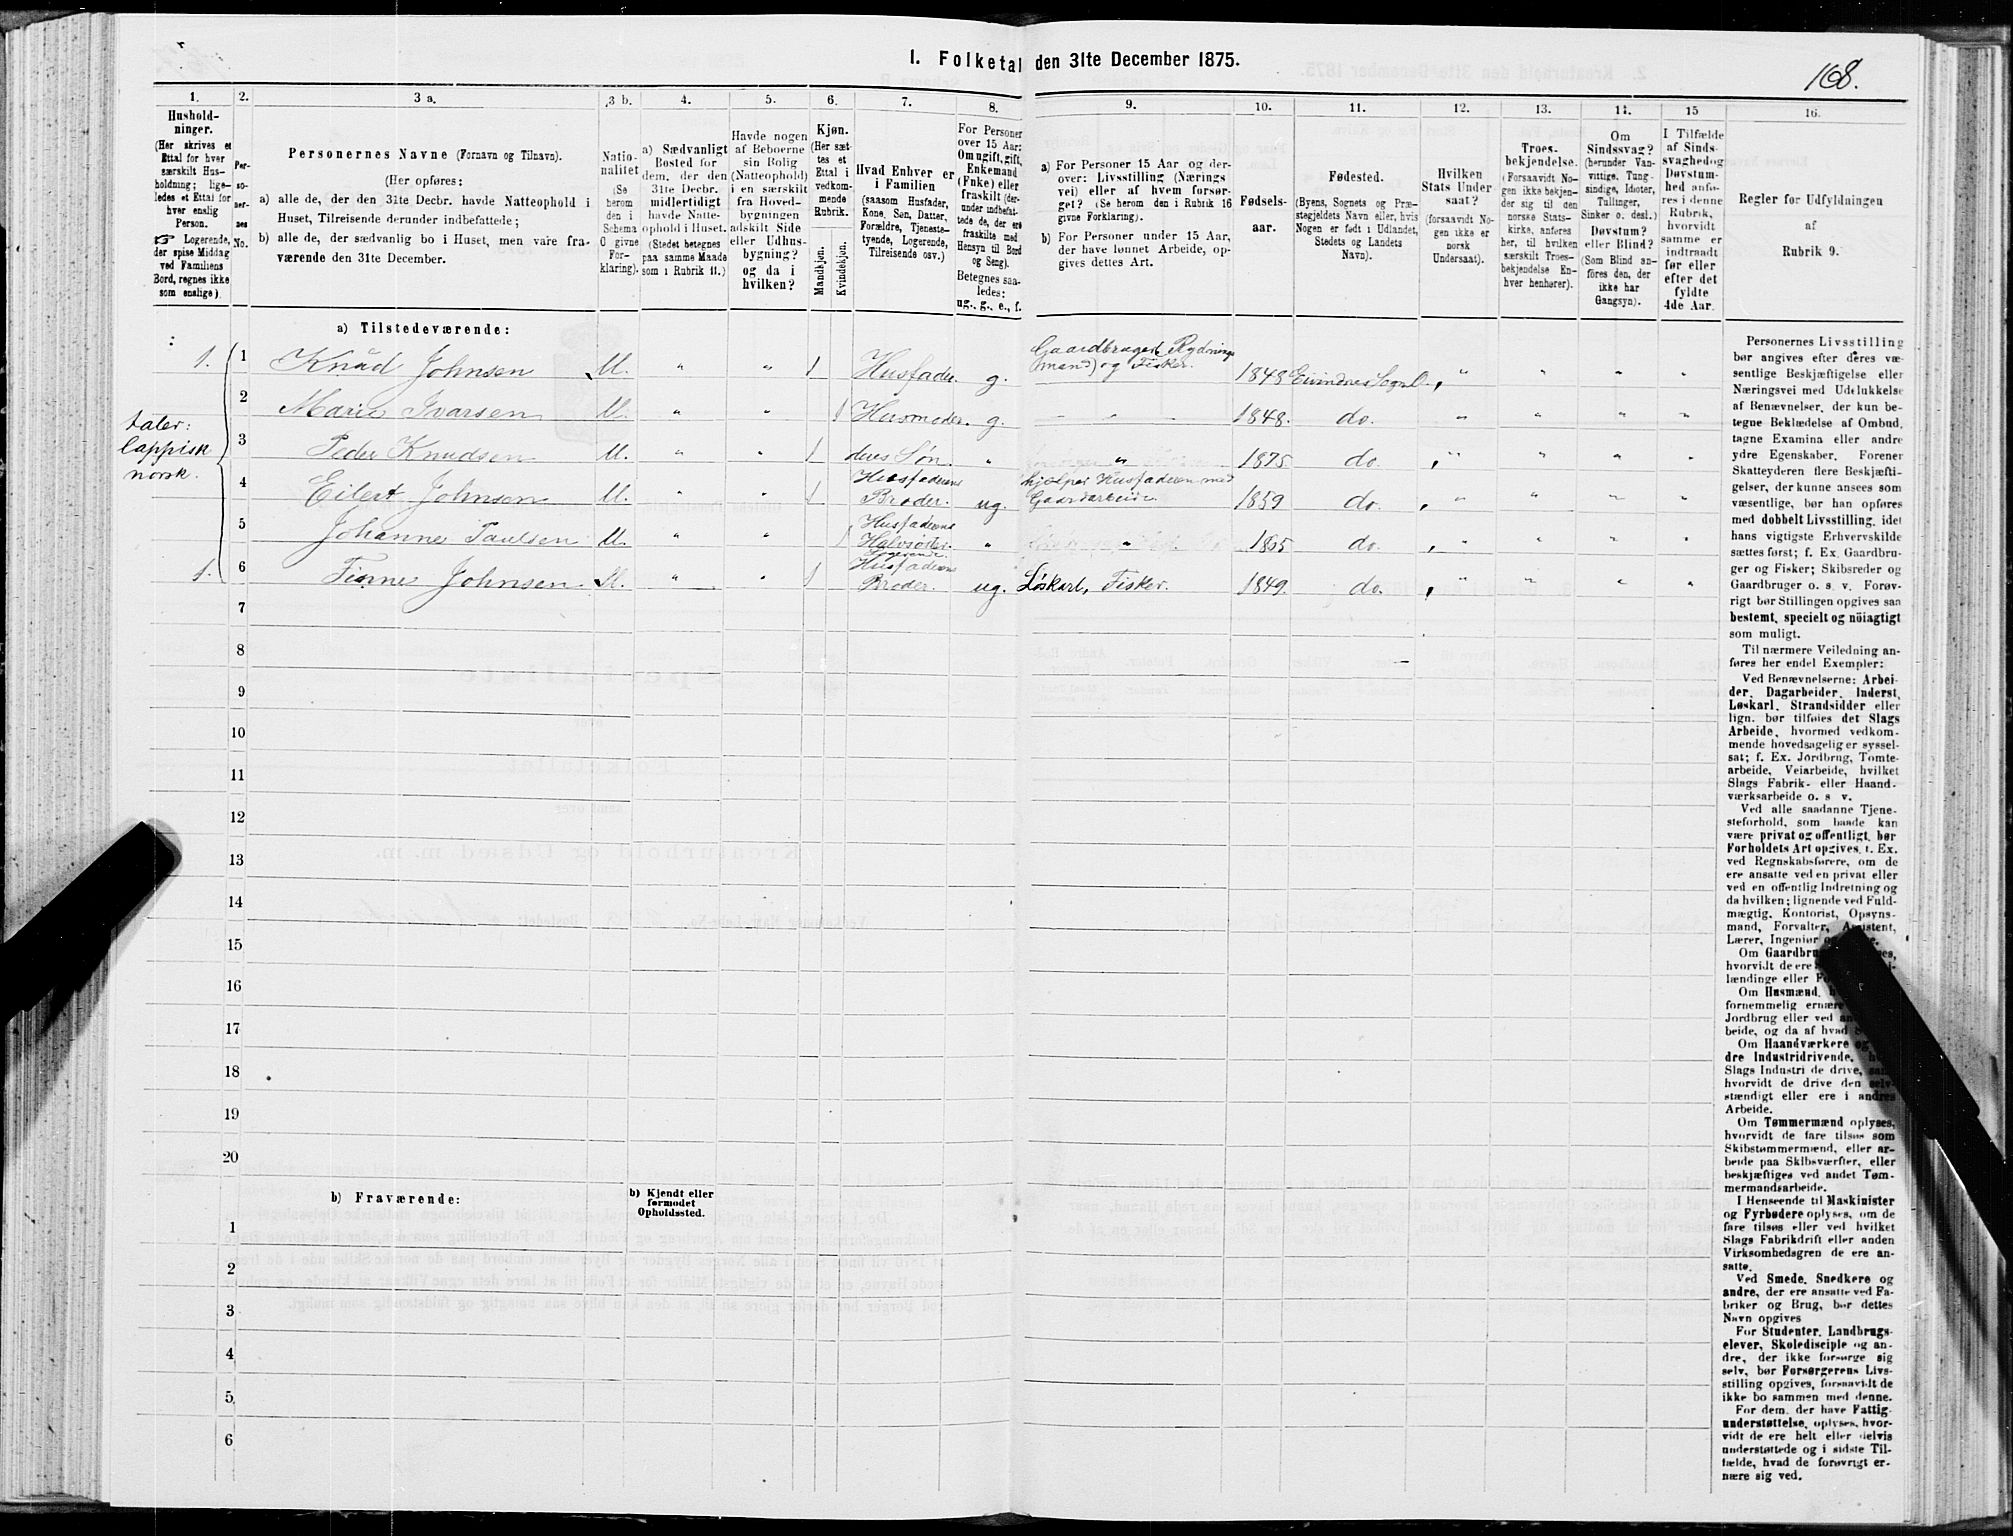 I. Folketal den 31te December 1875.
168.
1. 2. 3 a. 3 b. 4. 5. 6. 7. 8. 9. 10. 11. 12. 13. 14. 15 16.
Hushold-
ninger.
(Her skrives et
Ettal for hver
særskilt Hus-
holdning; lige-
ledes et Ettal for
hver enslig
Person.
☞ Logerende,
der spise Middag
ved Familiens
Bord, regnes ikke
som enslige).
Per-
so-
ner-
nes
No.
Personernes Navne (Fornavn og Tilnavn).
(Her opføres:
a) alle de, der den 31te Decbr. havde Natteophold i
Huset, Tilreisende derunder indbefattede;
b) alle de, der sædvanlig bo i Huset, men vare fra-
værende den 31te December.
Natio-
nalitet
(Se
herom
den i
Schema
O givne
For-
klaring).
a) Sædvanligt
Bosted for
dem, der den
31te Decbr.
midlertidigt
havde Natte-
ophold i Huset.
(Stedet betegnes
paa samme Maade
som i Rubrik 11.)
Havde nogen
af Beboerne
sin Bolig
(Natteophold)
i en særskilt
fra Hoved-
bygningen
adskilt Side
eller Udhus-
bygning?
og da i
hvilken?
Kjøn.
(Her sæt-
tes et
Ettal i
vedkom-
mende
Rubrik.
Mandkjøn.
Kvindekjøn.
Hvad Enhver er
i Familien
(saasom Husfader,
Kone, Søn, Datter,
Forældre, Tjeneste-
tyende, Logerende,
Tilreisende osv.)
For Personer
over 15 Aar:
Om ugift, gift,
Enkemand
(Enke) eller
fraskilt (der-
under indbefat-
tede de, der ere
fraskilte med
Hensyn til Bord
og Seng).
Betegnes saa-
ledes:
ug., g., e., f.
a) For Personer 15 Aar og der-
over: Livsstilling (Nærings
vei) eller af hvem forsør-
get? (Se herom den i Rubrik 16
givne Forklaring).
b) For Personer under 15 Aar,
der have lønnet Arbeide, op-
gives dettes Art.
Fødsels-
aar.
Fødested.
(Byens, Sognets og Præ-
stegjeldets Navn eller, hvis
Nogen er født i Udlandet,
Stedets og Landets
Navn).
Hvilken
Stats Under
saat?
(forsaavidt No-
gen ikke er
norsk
Undersaat).
Troes-
bekjendelse.
(Forsaavidt No-
gen ikke bekjen-
der sig til den
norske Stats-
kirke, anføres
her, til hvilken
særskilt Troes-
bekjendelse En-
hver henhører).
Om
Sindssvag?
(herunder Van-
vittige, Tung-
sindige, Idioter,
Tullinger,
Sinker o. desl.)
Døvstum?
eller Blind?
(Som Blind an-
føres den, der
ikke har
Gangsyn).
I Tilfælde
af Sinds-
svaghed og
Døvstum-
hed anfø-
res i denne
Rubrik,
hvorvidt
samme er
indtraadt
før eller
efter det
fyldte
4de Aar.
Regler for Udfyldningen
af
Rubrik 9.
a) Tilstedeværende:
1. 1 Knud Johnsen M. " " 1 Husfader g. Gaardbruger, Rydnings
mand) og Fisker. 1848 Evindnes Sogn " " " "
2 Maria Ivarsen M. " " 1 Husmoder. g. " " 1848. do. " " " "
taler:
lappisk
norsk.
3 Peder Knudsen M. " " 1 deres Søn " " 1875 do. " " " "
4 Eilert Johnsen M. " " 1 Husfaderens
Broder. ug. hjælper Husfaderen med
Gaardarbeide. 1859 do. " " " "
5 Johanne Paulsen M. " " 1 Husfaderens
Halvsøster. " " 1865 do. " " " "
1. 6 Finne Johnsen M. " " 1 Logerende.
Husfaderens
Broder. ug. Løskarl, Fisker. 1849. do. " " " "
7
8
9
10
11
12
13
14
15
16
17
18
19
20
b) Fraværende:
b) Kjendt eller
formodet
Opholdssted.
1
2
3
4
5
6
Personernes Livsstilling
bør angives efter deres væ-
sentlige Beskjæftigelse eller
Næringsvei med Udelukkelse
af Benævnelser, der kun be-
tegne Beklædelse af Ombud,
tagne Examina eller andre
ydre Egenskaber. Forener
Skatteyderen flere Beskjæfti-
gelser, der kunne ansees som
væsentlige, bør han opføres
med dobbelt Livsstilling, idet
hans vigtigste Erhvervskilde
sættes først; f. Ex. Gaardbru-
ger og Fisker; Skibsreder og
Gaardbruger o. s. v. Forøv-
rigt bør Stillingen opgives saa
bestemt, specielt og nöiagtigt
som muligt.
Til nærmere Veiledning an-
føres her endel Exempler:
Ved Benævnelserne: Arbei-
der, Dagarbeider, Inderst,
Løskarl, Strandsidder eller
lign. bør tilføies det Slags
Arbeide, hvormed vedkom-
mende hovedsagelig er syssel-
sat; f. Ex. Jordbrug, Tomte-
arbeide, Veiarbeide, hvilket
Slags Fabrik- eller Haand-
værksarbeide o. s v.
Ved alle saadanne Tjene-
steforhold, som baade kan
være privat og offentligt, bør
Forholdets Art opgives, t. Ex.
ved Regnskabsførere, om de
ere ansatte ved en privat eller
ved en offentlig Indretning og
da hvilken; lignende ved Fuld-
mægtig, Kontorist, Opsyns-
mand, Forvalter, Assistent,
Lærer, Ingeniør
Om
hvorvidt de ere
lændinge eller
Om Husmænd,
fornemmelig
Jordbrug eller ved
beide, og da af hvad
Om Haandværkere og
dre Industridrivende,
Slags Industri de drive, samt
hvorvidt de drive den selv-
stændigt eller ere i andres
Arbeide.
Om Tømmermænd oplyses,
hvorvidt de fare tilsøs som
Skibstømmermænd, eller ar-
beide paa Skibsværfter, eller
beskjæftiges ved andet Tøm-
mermandsarbeide.
I Henseende til Maskinister
og Fyrbødere oplyses, om de
fare tilsøs eller ved hvilket
Slags Fabrikdrift eller anden
Virksomhedsgren de ere an-
satte.
Ved Smede, Snedkere og
andre, der ere ansatte ved Fa-
briker og Brug, bør dettes
Navn opgives
For Studenter, Landbrugs-
elever, Skoledisciple og an-
dre, der ikke forsørge sig
selv, bør Forsørgerens Livs-
stilling opgives, forsaavidt de
ikke bo sammen med denne.
For dem, der have Fattig-
understøttelse, oplyses, hvor-
vidt de ere helt eller delvis
understøttede og i sidste Til-
fælde, hvad de forøvrigt er-
nære sig ved.